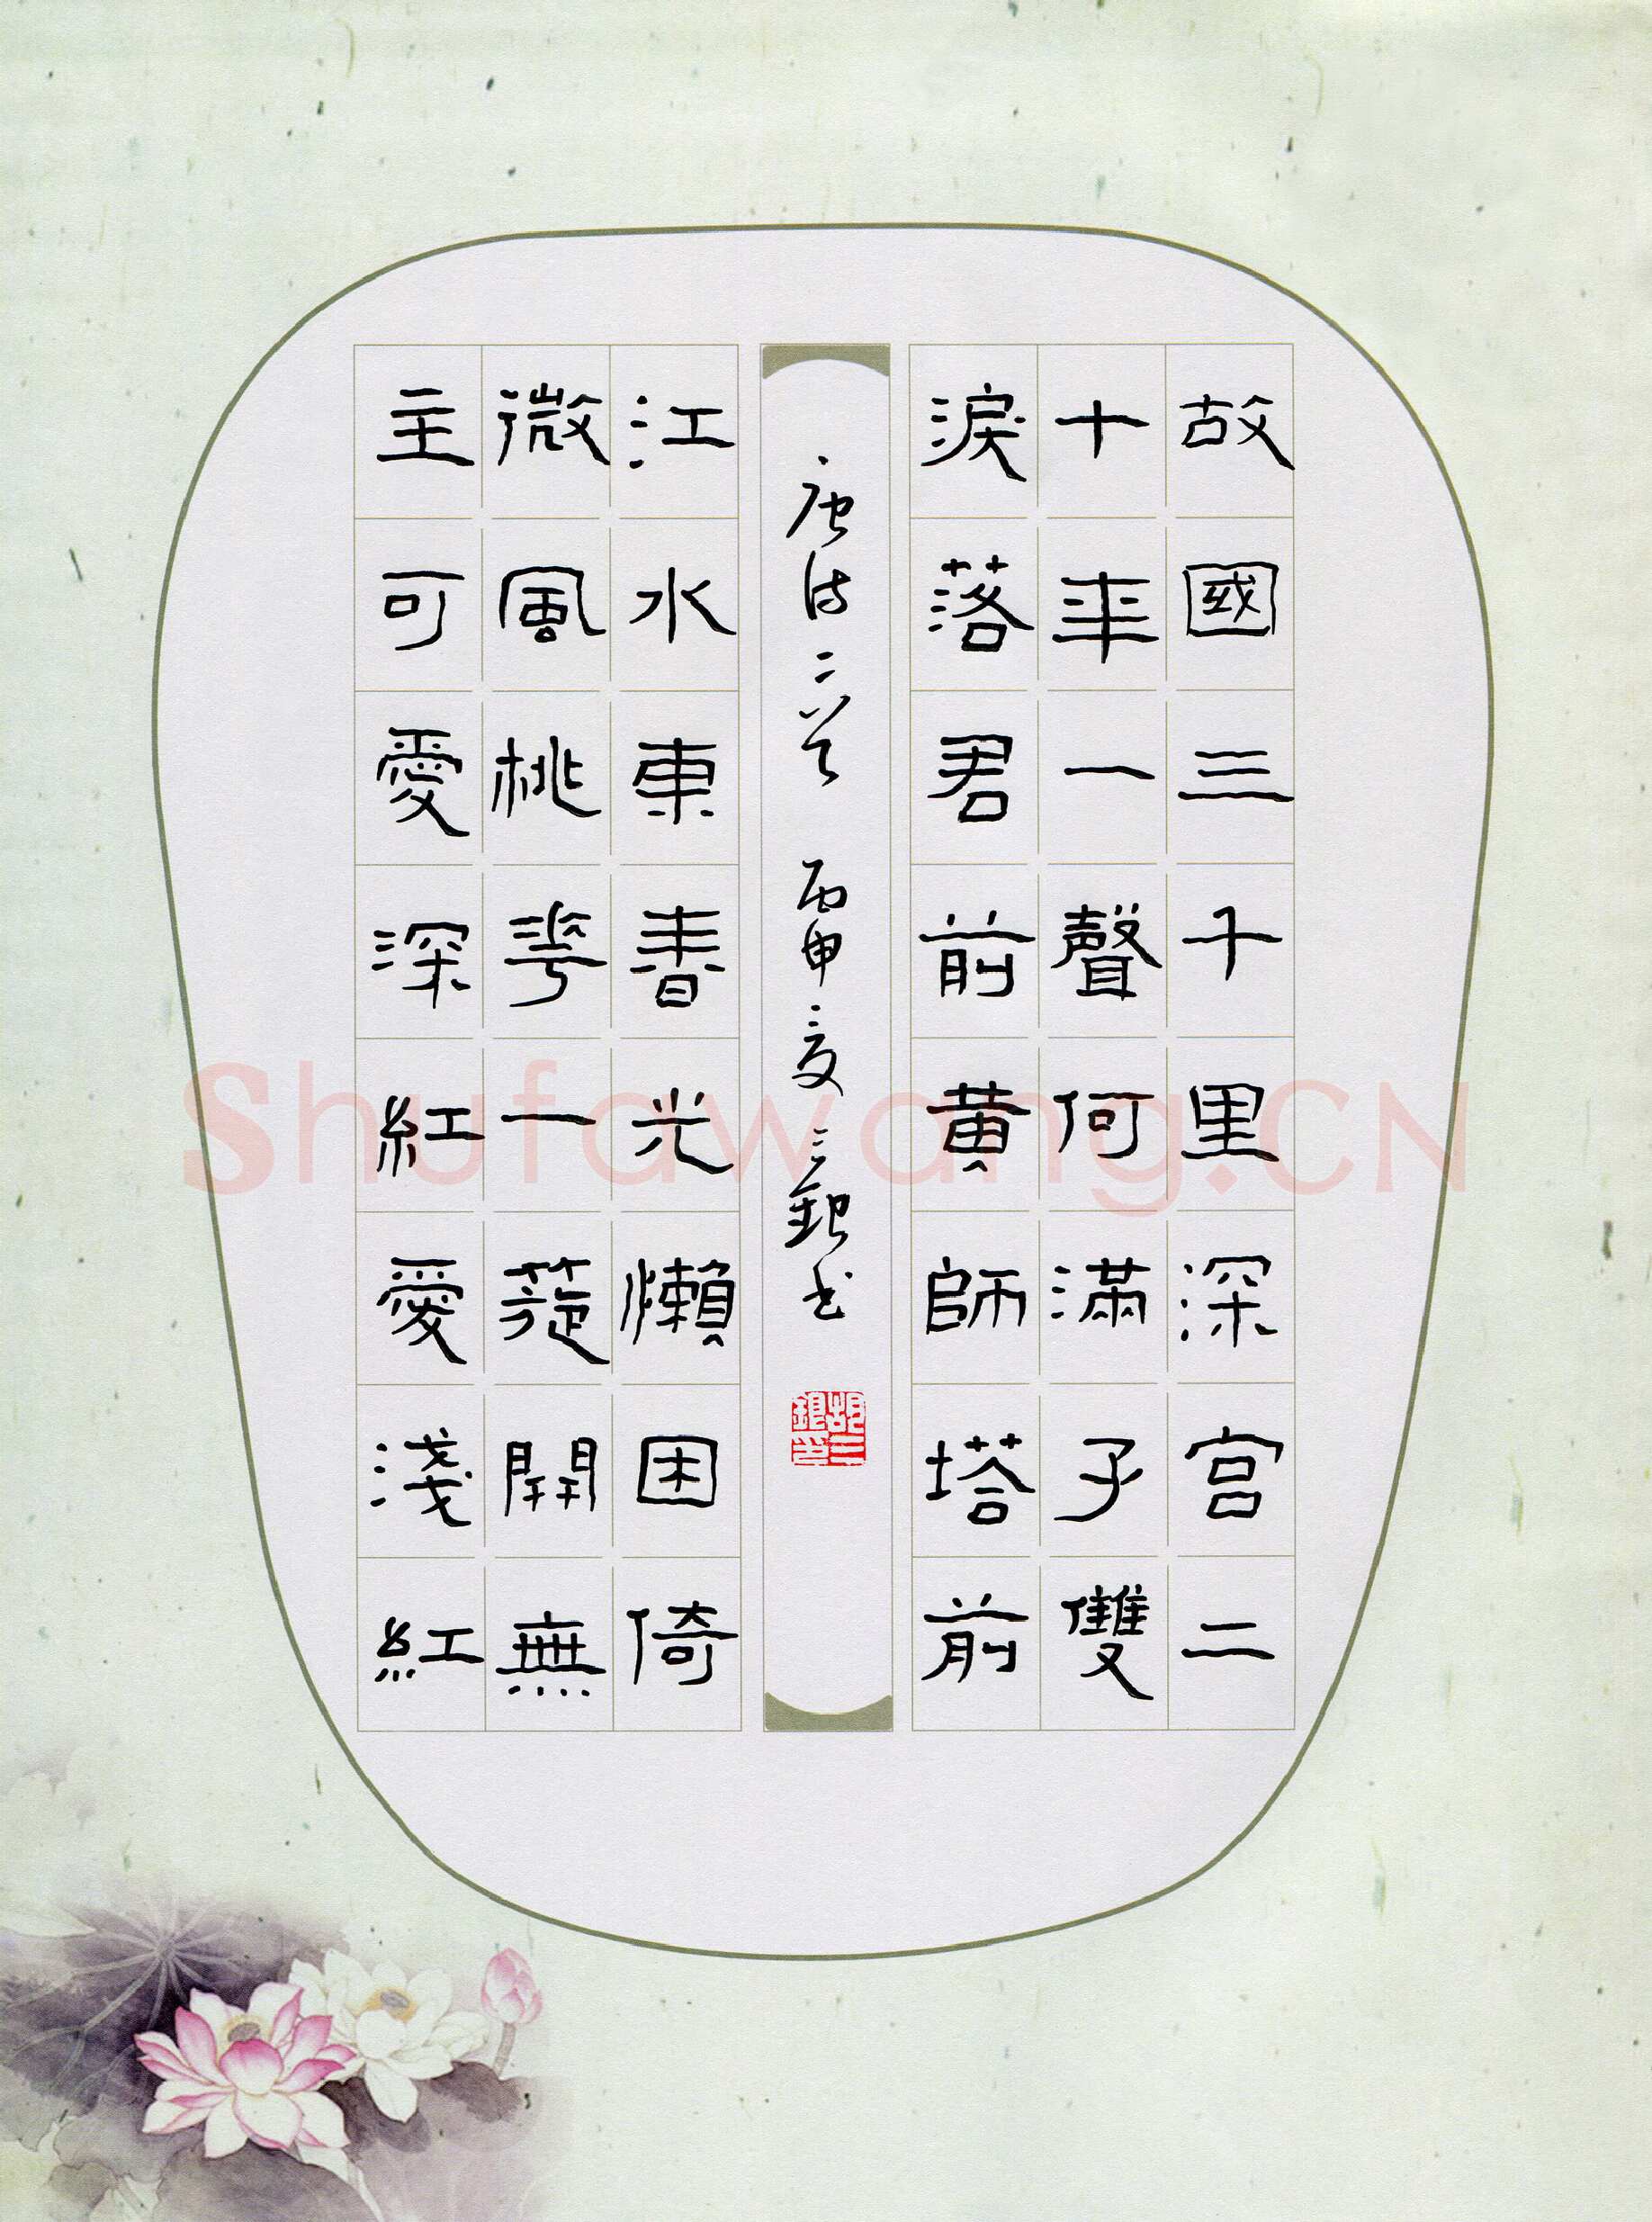 故國三千里深宮二
十年一聲何滿子雙
淚落君前黄師塔前
唐诗二首 丙申夏 三銀书
胡三銀印
江水東春光懶困倚
微風桃華一簇開無
主可愛深紅愛淺紅
Shufawang.CN